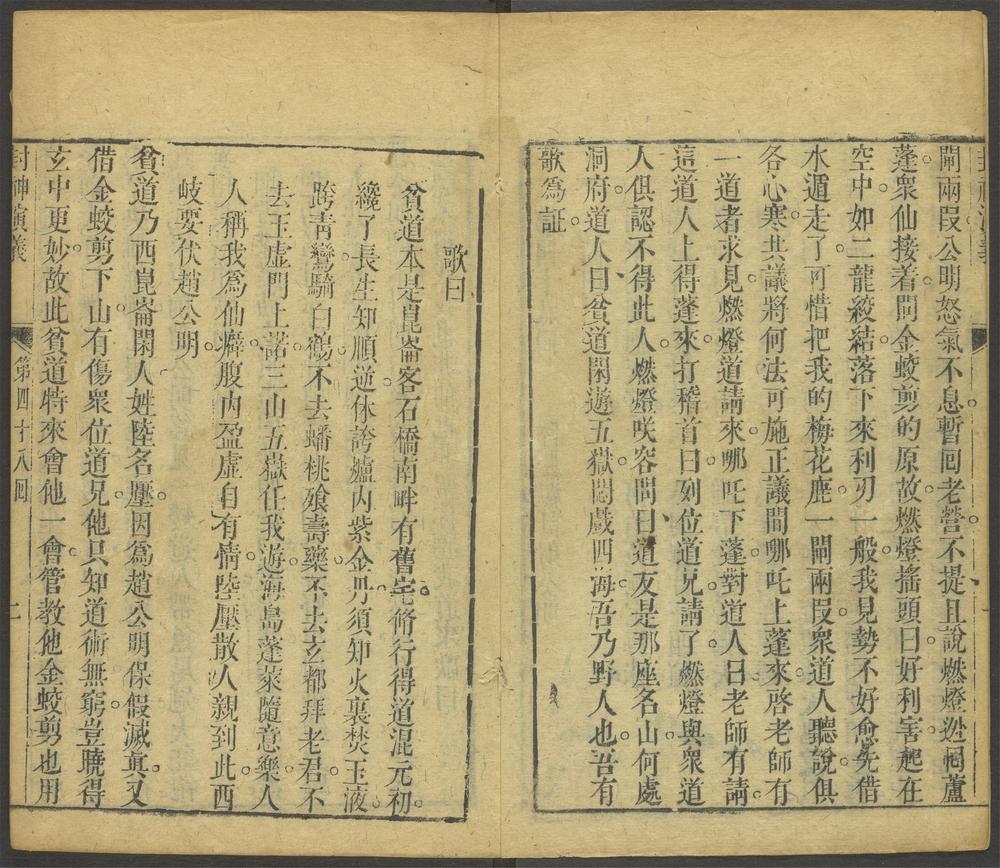 封神演義
閘兩叚公明怒氣不息暫囘老營不提且說燃燈迯囘蘆
蓬衆仙接着問金蛟剪的原故燃燈搖頭曰好利害起在
空中如二龍絞結落下來利刃一般我見勢不好預先借
水遁走了可惜把我的梅花鹿一閘兩叚衆道人聽說俱
各心寒共議將何法可施正議間哪吒上蓬來啓老師有
一道者求見燃燈道請來哪吒下蓬對道人曰老師有請
這道人上得蓬來打稽首曰列位道兄請了燃燈與衆道
人俱認不得此人燃燈咲容問曰道友是那座名山何處
洞府道人曰貧道閑遊五嶽悶戲四海吾乃野人也吾有
歌爲証
歌曰
貧道本是崑崙客石橋南畔有舊宅脩行得道混元初
纔了長生知順逆休誇爐內紫金丹須知火裏焚玉液
跨青鸞騎白鶴不去蟠桃飱壽藥不去玄都拜老君不
去玉虛門上諾三山五嶽任我遊海島蓬萊隨意樂人
人稱我爲仙癖腹內盈虛自有情陸壓散人親到此西
岐要伏趙公明
貧道乃西崑崙閑人姓陸名壓因爲趙公明保假滅眞又
借金蛟剪下山有傷衆位道兄他只知道術無窮豈曉得
玄中更妙故此貧道特來會他一會管教他金蛟剪也用
封神演義
第四十八囘
二